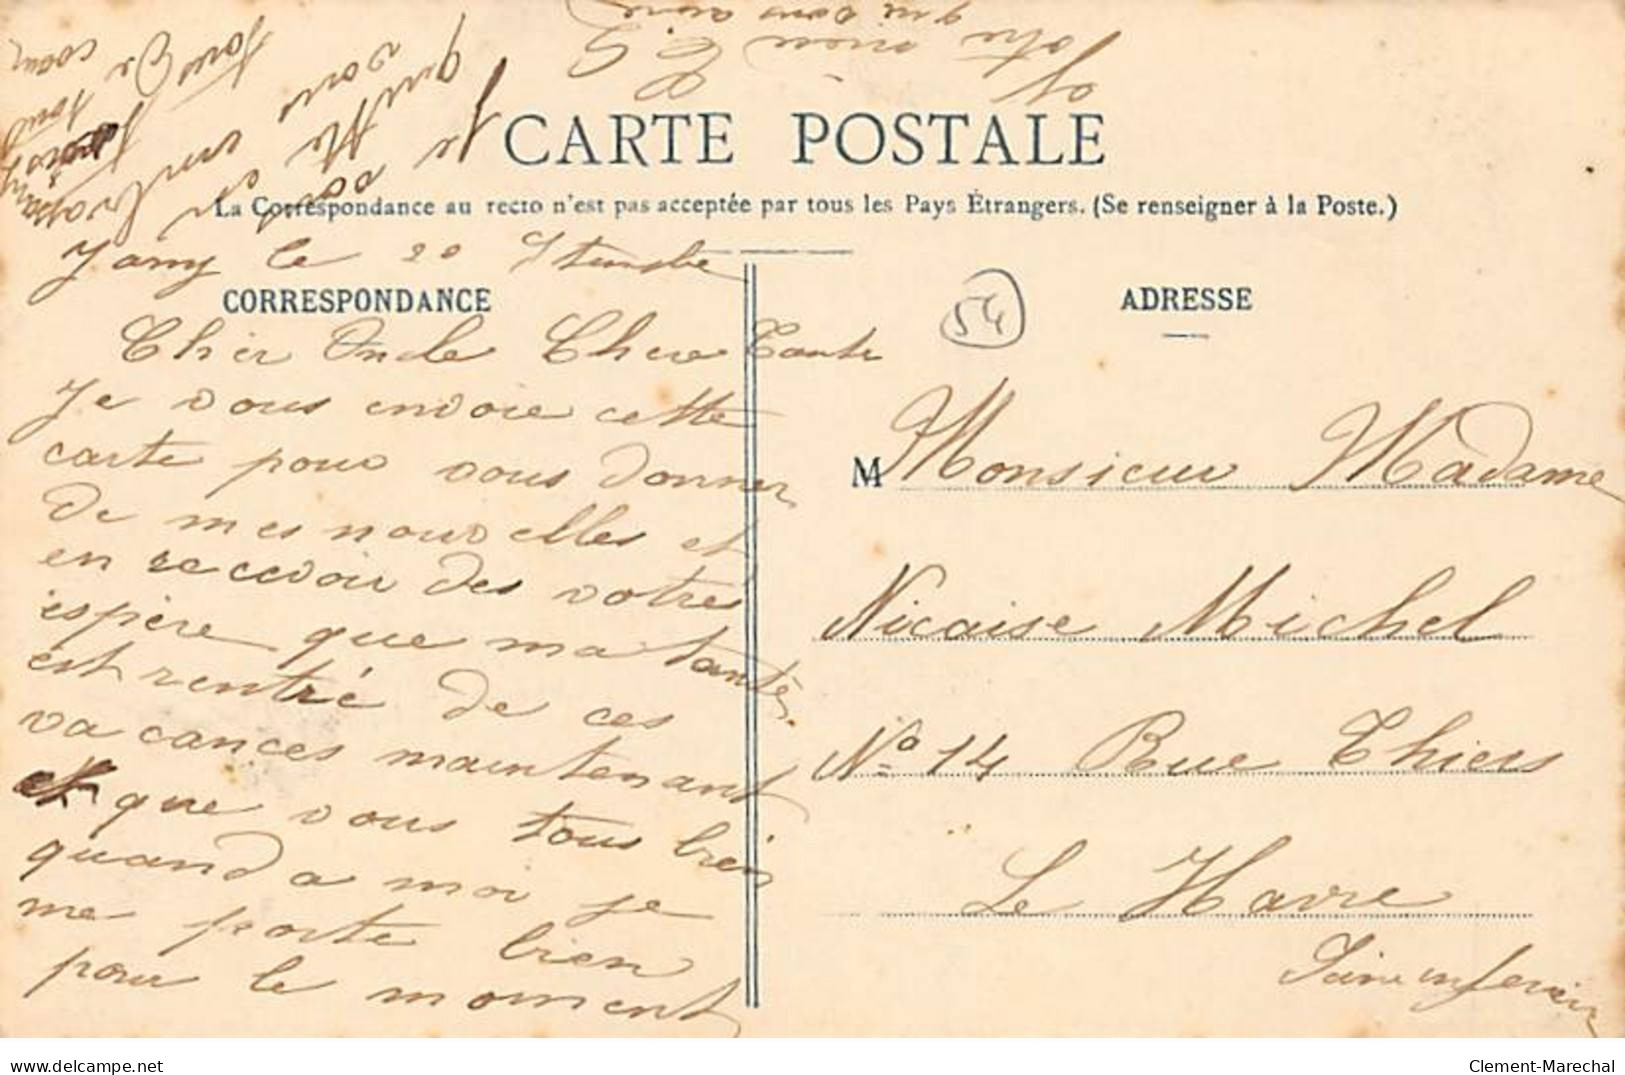 CARTE POSTALE
La Correspondance au recto n'est pas acceptée par tous les Pays Étrangers. (Se renseigner à la Poste.)
CORRESPONDANCE
Jarny le 20
Cher Oncle Chere Tante
Je vous envoie cette
carte pour vous donner
de mes nouvelles et
en recevoir des votres
espère que ma tante
est rentré de ces
vacances maintenant
et que vous tous bien
quand a moi je
me porte bien
pour le moment
qui vous
tout
coeur
Votre niece
qui vous aime
54
ADRESSE
M Monsieur Madame
Nicaise Michel
No 14 Rue Thiers
Le Havre
Seine inferieure
delcampe.net
Clement-Marechal